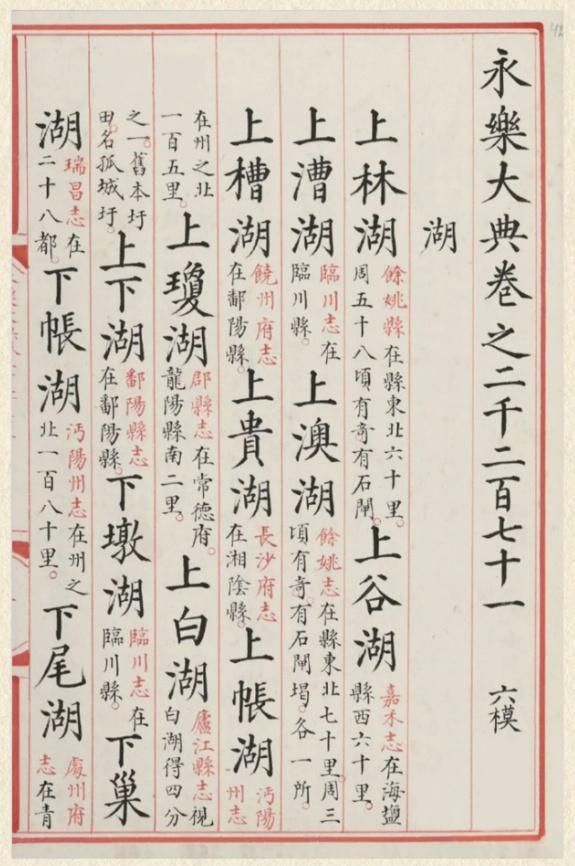 永樂大典卷之二千二百七十一 六模
湖
上林湖餘姚縣在縣東北六十里。周五十八頃有奇有石閘。上谷湖嘉禾志在海鹽縣西六十里。
上漕湖臨川志在臨川縣。上澳湖餘姚志在縣東北七十里周三頃有奇。有石閘堨。各一所。
上槽湖饒州府志在鄱陽縣。上貴湖長沙府志在湘陰縣。上帳湖沔陽州志
在州之北一百五里。上瓊湖郡縣志在常德府。龍陽縣南二里。上白湖廬江縣志視白湖得四分
之一。舊本圩田名孤城圩。上下湖鄱陽縣志在鄱陽縣。下墩湖臨川志在臨川縣。下巢
湖瑞昌志在二十八都。下帳湖沔陽州志在州之北一百八十里。下尾湖處州府志在青